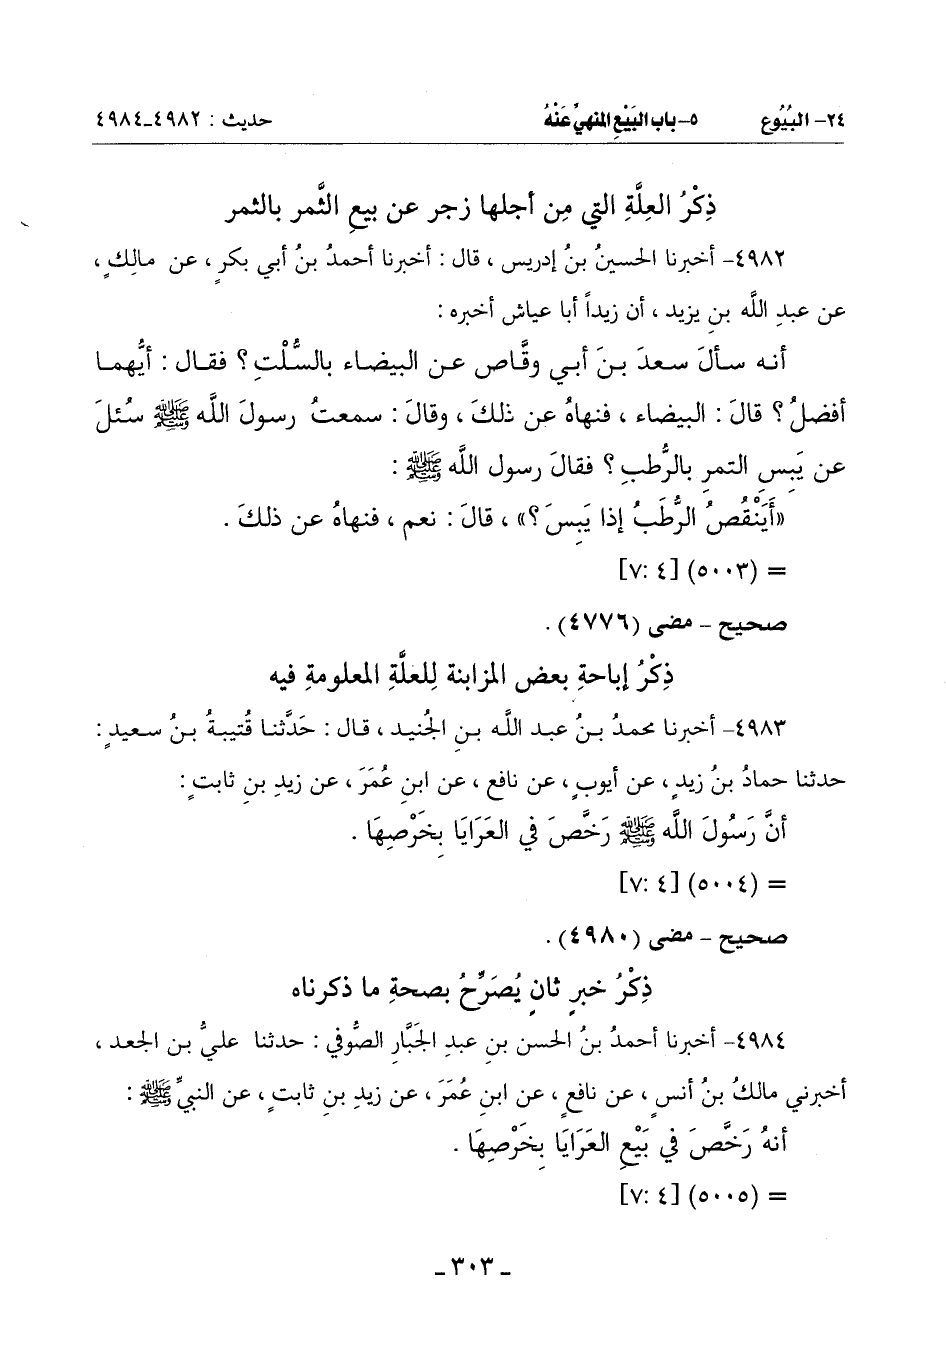 ٢٤- البُيُوع ٥- باب البَيْعِ المنهيِّ عَنْهُ حديث : ٤٩٨٢-٤٩٨٤
ذِكْرُ العِلَّةِ التي مِن أجلها زجر عن بيعِ الثَّمر بالثمر
٤٩٨٢- أخبرنا الحسينُ بنُ إدريس ، قال : أخبرنا أحمدُ بنُ أبي بكرٍ ، عن مالِكٍ ،
عن عبدِ اللَّه بنِ يزيد ، أن زيداً أبا عياش أخبره :
أنه سألَ سعدَ بنَ أبي وقَّاص عن البيضاء بالسُّلْتِ ؟ فقال : أيُّهما
أفضلُ ؟ قالَ : البيضاء ، فنهاهُ عن ذلكَ ، وقالَ : سمعتُ رسولَ اللَّه ﷺ سُئلَ
عن يَبسِ التمرِ بالرُّطبِ ؟ فقالَ رسول اللَّه ﷺ :
«أَيَنْقُصُ الرُّطَبُ إذا يَبِسَ ؟» ، قالَ : نعم ، فنهاهُ عن ذلكَ .
= (٥٠٠٣) [٤ :٧]
صحيح - مضى (٤٧٧٦) .
ذِكْرُ إباحةِ بعض المزابنة لِلعلَّةِ المعلومةِ فيه
٤٩٨٣- أخبرنا محمدُ بنُ عبد اللَّه بنِ الجُنيد ، قال : حَدَّثنا قُتيبةُ بنُ سعيدٍ :
حدثنا حمادُ بنُ زيدٍ ، عن أيوبٍ ، عن نافع ، عن ابنِ عُمَرَ ، عن زيدِ بنِ ثابتٍ :
أنَّ رَسُولَ اللَّه ﷺ رَخَّصَ في العَرَايَا بِخَرْصِهَا .
= (٥٠٠٤) [٤ :٧]
صحيح - مضى (٤٩٨٠) .
ذِكْرُ خبرٍ ثانٍ يُصَرِّحُ بصحةِ ما ذكرناه
٤٩٨٤- أخبرنا أحمدُ بنُ الحسن بنِ عبدِ الجَبَّارِ الصُّوفي : حدثنا عليُّ بن الجعد ،
أخبرني مالكُ بنُ أنسٍ ، عن نافعٍ ، عن ابنِ عُمَرَ ، عن زيدِ بنِ ثابتٍ ، عن النبيِّ ﷺ :
أنهُ رَخَّصَ في بَيْعِ العَرَايَا بِخَرْصِهَا .
= (٥٠٠٥) [٤ :٧]
- ٣٠٣ -